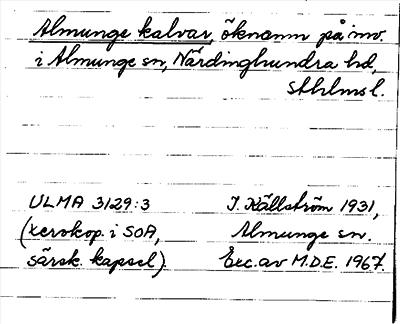 Almunge kalvar, öknamn på inv.
i Almunge sn, Närdinghundra hd,
Sthlms l.
ULMA 3129:3 I. Källström 1931,
(xerokop. i SOA, Almunge sn.
särsk. kapsel). Exc. av M.D.E. 1967.